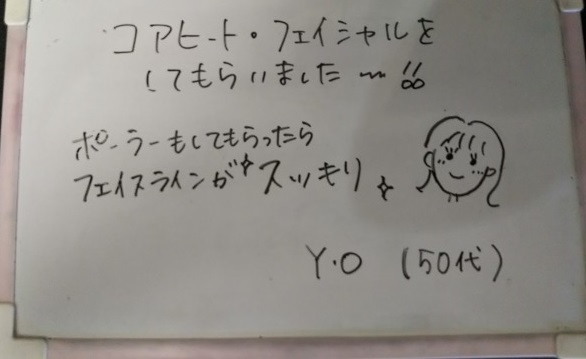 コアヒート・フェイシャルを
してもらいました〜!!
ポーラーもしてもらったら
フェイスラインがスッキリ
Y・O (50代)